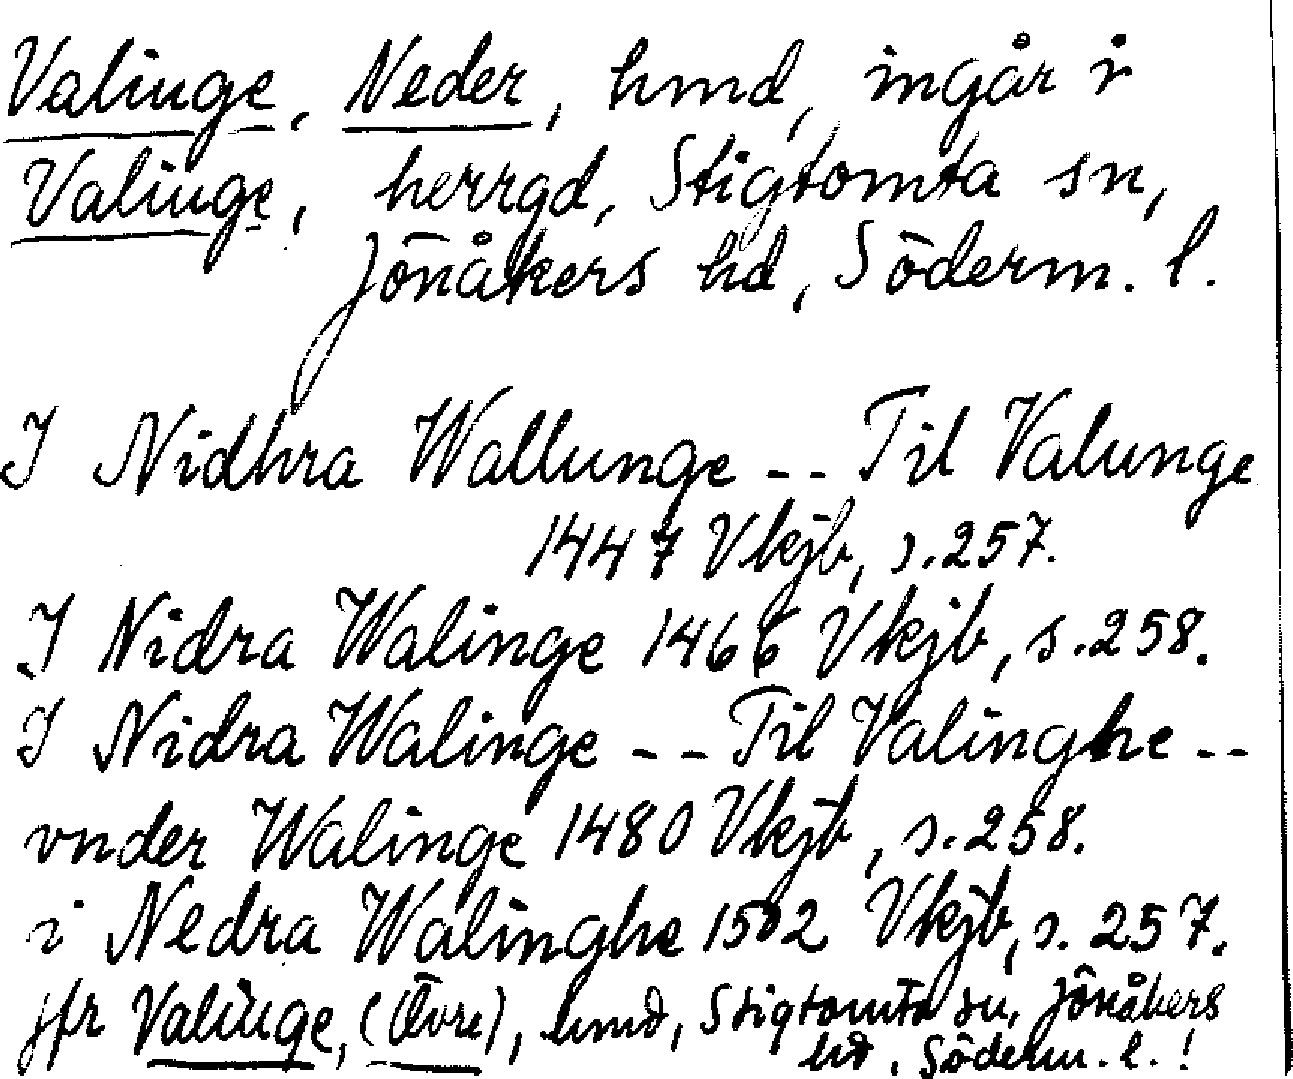 Valinge, Neder, hmd, ingår i
Valinge, herrgd, Stigtomta sn,
Jönåkers hd, Söderm. l.
I Nidhra Wallunge -- Til Valunge
1447 Vkjb, s.257.
I Nidra Walinge 1466 Vkjb, s.258.
I Nidra Walinge -- Til Valinghe --
vnder Walinge 1480 Vkjb, s.258.
i Nedra Walinghe 1502 Vkjb, s. 257.
jfr Valinge, (Övre), hmd, Stigtomta sn, Jönåkers
hd, Söderm. l. !